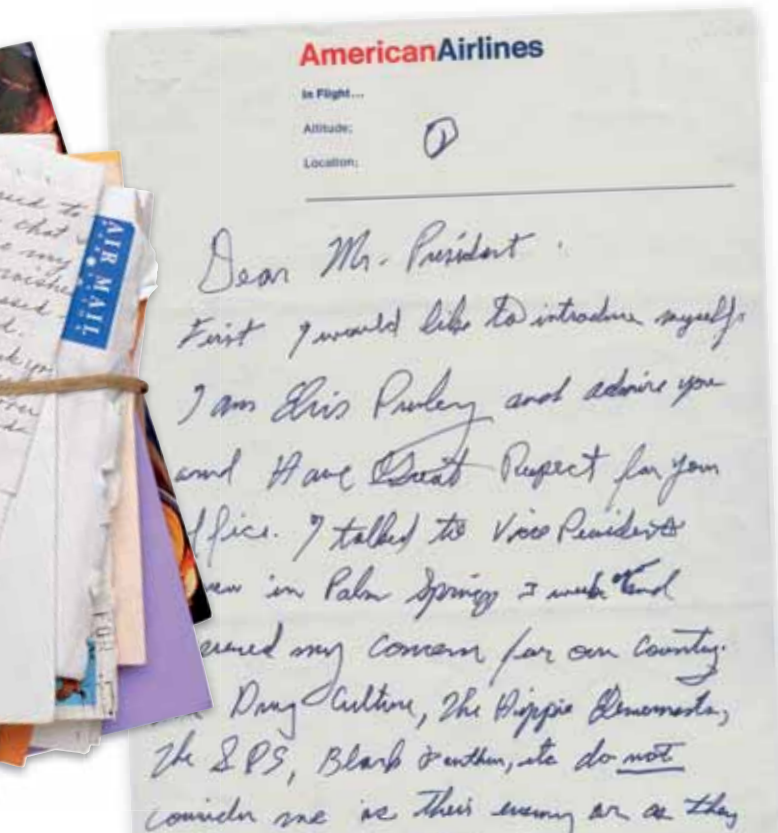 AmericanAirlines
In Flight...
Altitude;
Location;
1
Dear Mr. President.
First I would like to introduce myself.
I am Elvis Presley and admire you
and Have Great Respect for your
ffice. I talked to Vice President
new in Palm Springs 3 weeks and
my concern for our country.
Drug Culture, The Hippie Elements,
The SDS, Black Panthers, etc do not
consider me as their enemy or as they
AIR MAIL
that
my